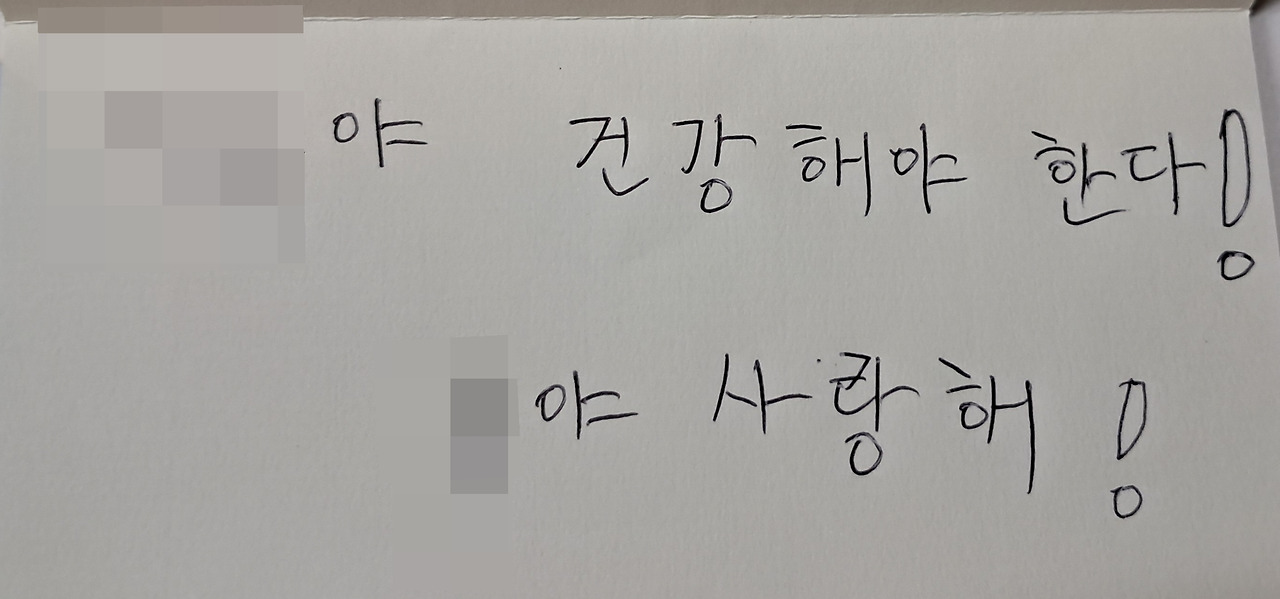 야 건강해야 한다!
야 사랑해!